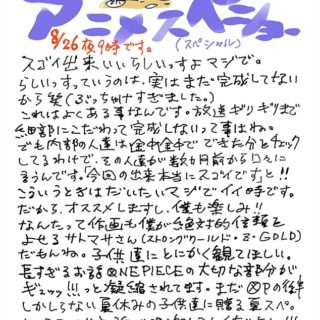 アニメスペショー
8/26夜9時です。(スペシャル)
スゴイ出来いいらしいっすよマジで。
らしいっすっていうのは、実はまだ完成してない
から笑(ぶっちゃけすぎました。)
これはよくある事なんです。放送ギリギリまで
細部にこだわって完成しないって事はね。
でも内部の人達は途中途中でできた分とチェック
してるわけで、その人達が数ヶ月前から口々に
言うんです。「今回の出来本当にスゴイです」と!!
こういうときはだいたいマジでイイ時です。
だから、オススメしますし、僕も楽しみ!!
なんたって作画も僕が絶対的信頼を
よせるサトマサさん(ストロングワールド・Z・GOLD)
だもんね。子供達にとにかく観てほしい。
長すぎるお話ONE PIECEの大切な部分が
ギュッ!!!っと凝縮されてます。まだOPの後半
しかしらない夏休みの子供達に贈る夏スペ。